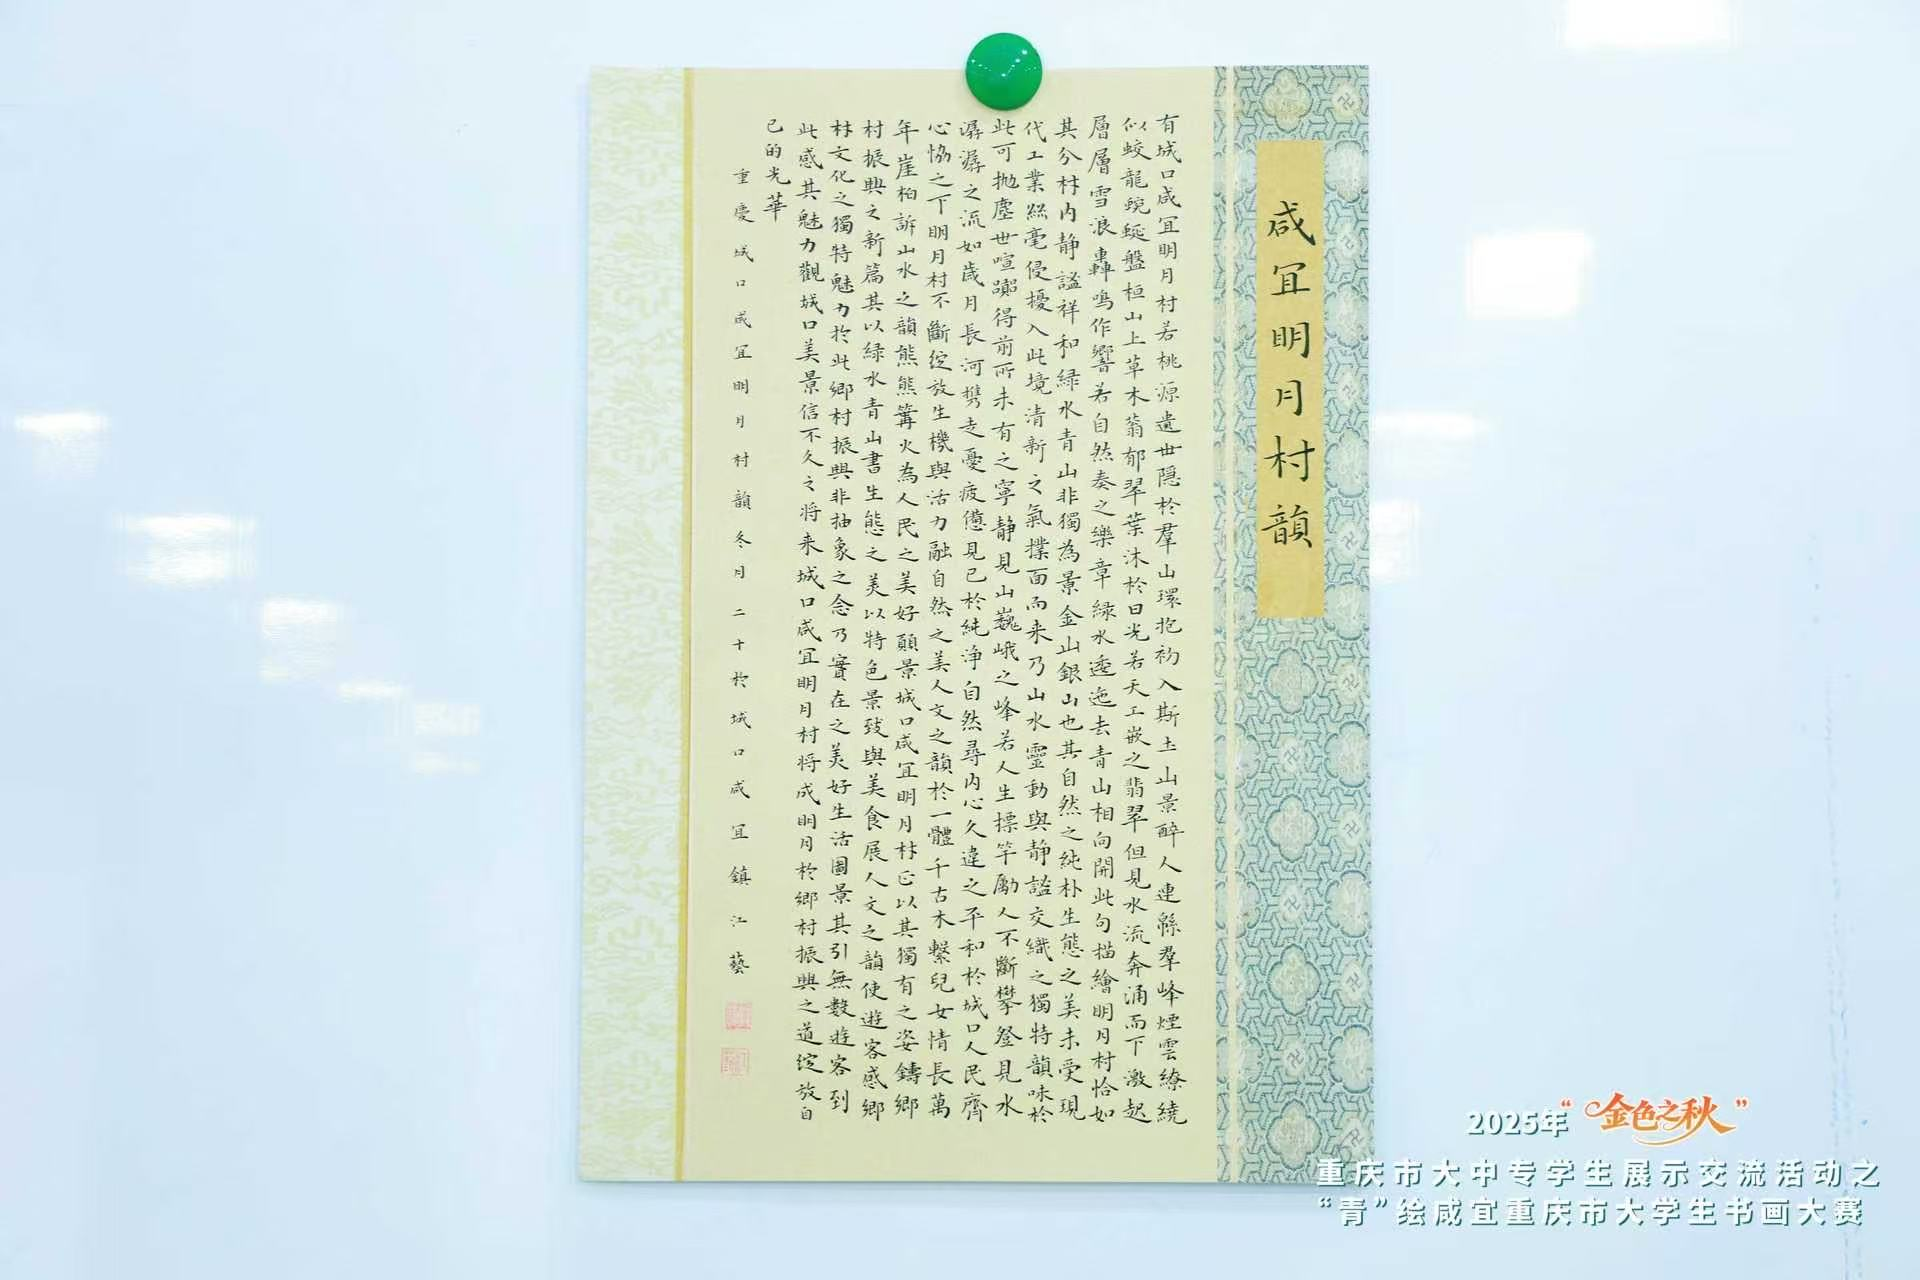 咸宜明月村韻
有城口咸宜明月村若桃源遺世隱於羣山環抱初入斯土山景醉人連緜羣峰煙雲繚繞
似蛟龍蜿蜒盤桓山上草木蓊郁翠葉沐於日光若天工嵌之翡翠但見水流奔涌而下激起
層層雪浪轟鳴作響若自然奏之樂章緑水逶迤去青山相向開此句描繪明月村恰如
其分村内静謐祥和緑水青山非獨為景金山銀山也其自然之純朴生態之美未受現
代工業絲毫侵擾入此境清新之氣撲面而来乃山水靈動與静謐交織之獨特韻味於
此可抛塵世喧躁得前所未有之寧静見山巍峨之峰若人生標竿勵人不斷攀登見水
潺潺之流如歲月長河携走憂疲憊見已於純淨自然尋内心久違之平和於城口人民齊
心協之下明月村不斷綻放生機與活力融自然之美人文之韻於一體千古木繫兒女情長萬
年崖柏訴山水之韻熊熊篝火為人民之美好願景城口咸宜明月村正以其獨有之姿鑄鄉
村振興之新篇其以緑水青山書生態之美以特色景致與美食展人文之韻使遊客感鄉
村文化之獨特魅力於此鄉村振興非抽象之念乃實在之美好生活圖景其引無數遊客到
此感其魅力觀城口美景信不久之将来城口咸宜明月村将成明月於鄉村振興之道綻放自
己的光華
重慶城口咸宜明月村韻冬月二十於城口咸宜鎮江藝
2025年“金色之秋”
重庆市大中专学生展示交流活动之
“青”绘咸宜重庆市大学生书画大赛